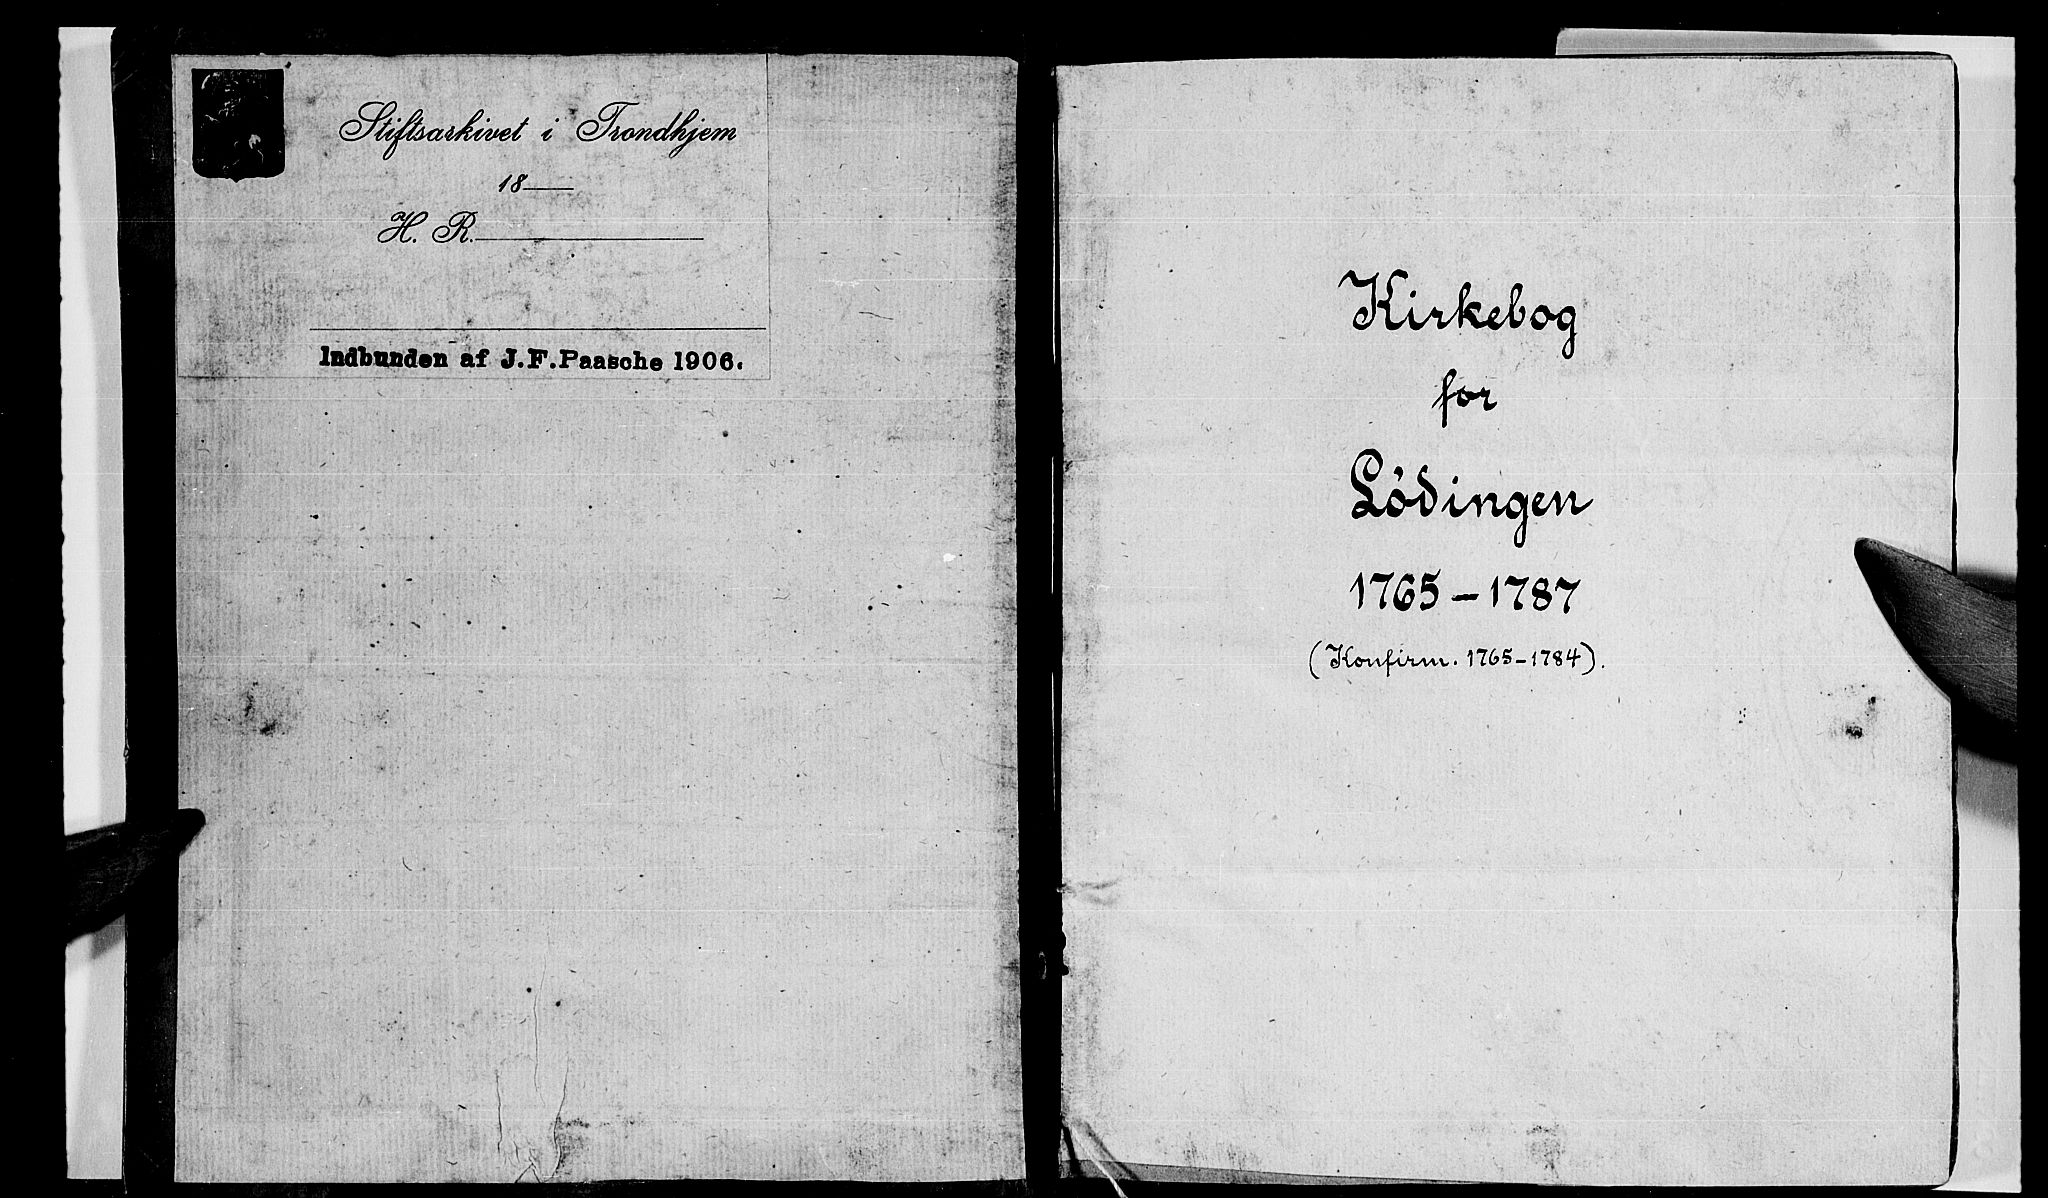 Stiftsarkivet i Trondhjem
18
H. R.
Indbunden af J.F. Paasche 1906.
Kirkebog
for
Lödingen
1765-1787
(Konfirm. 1765-1784).